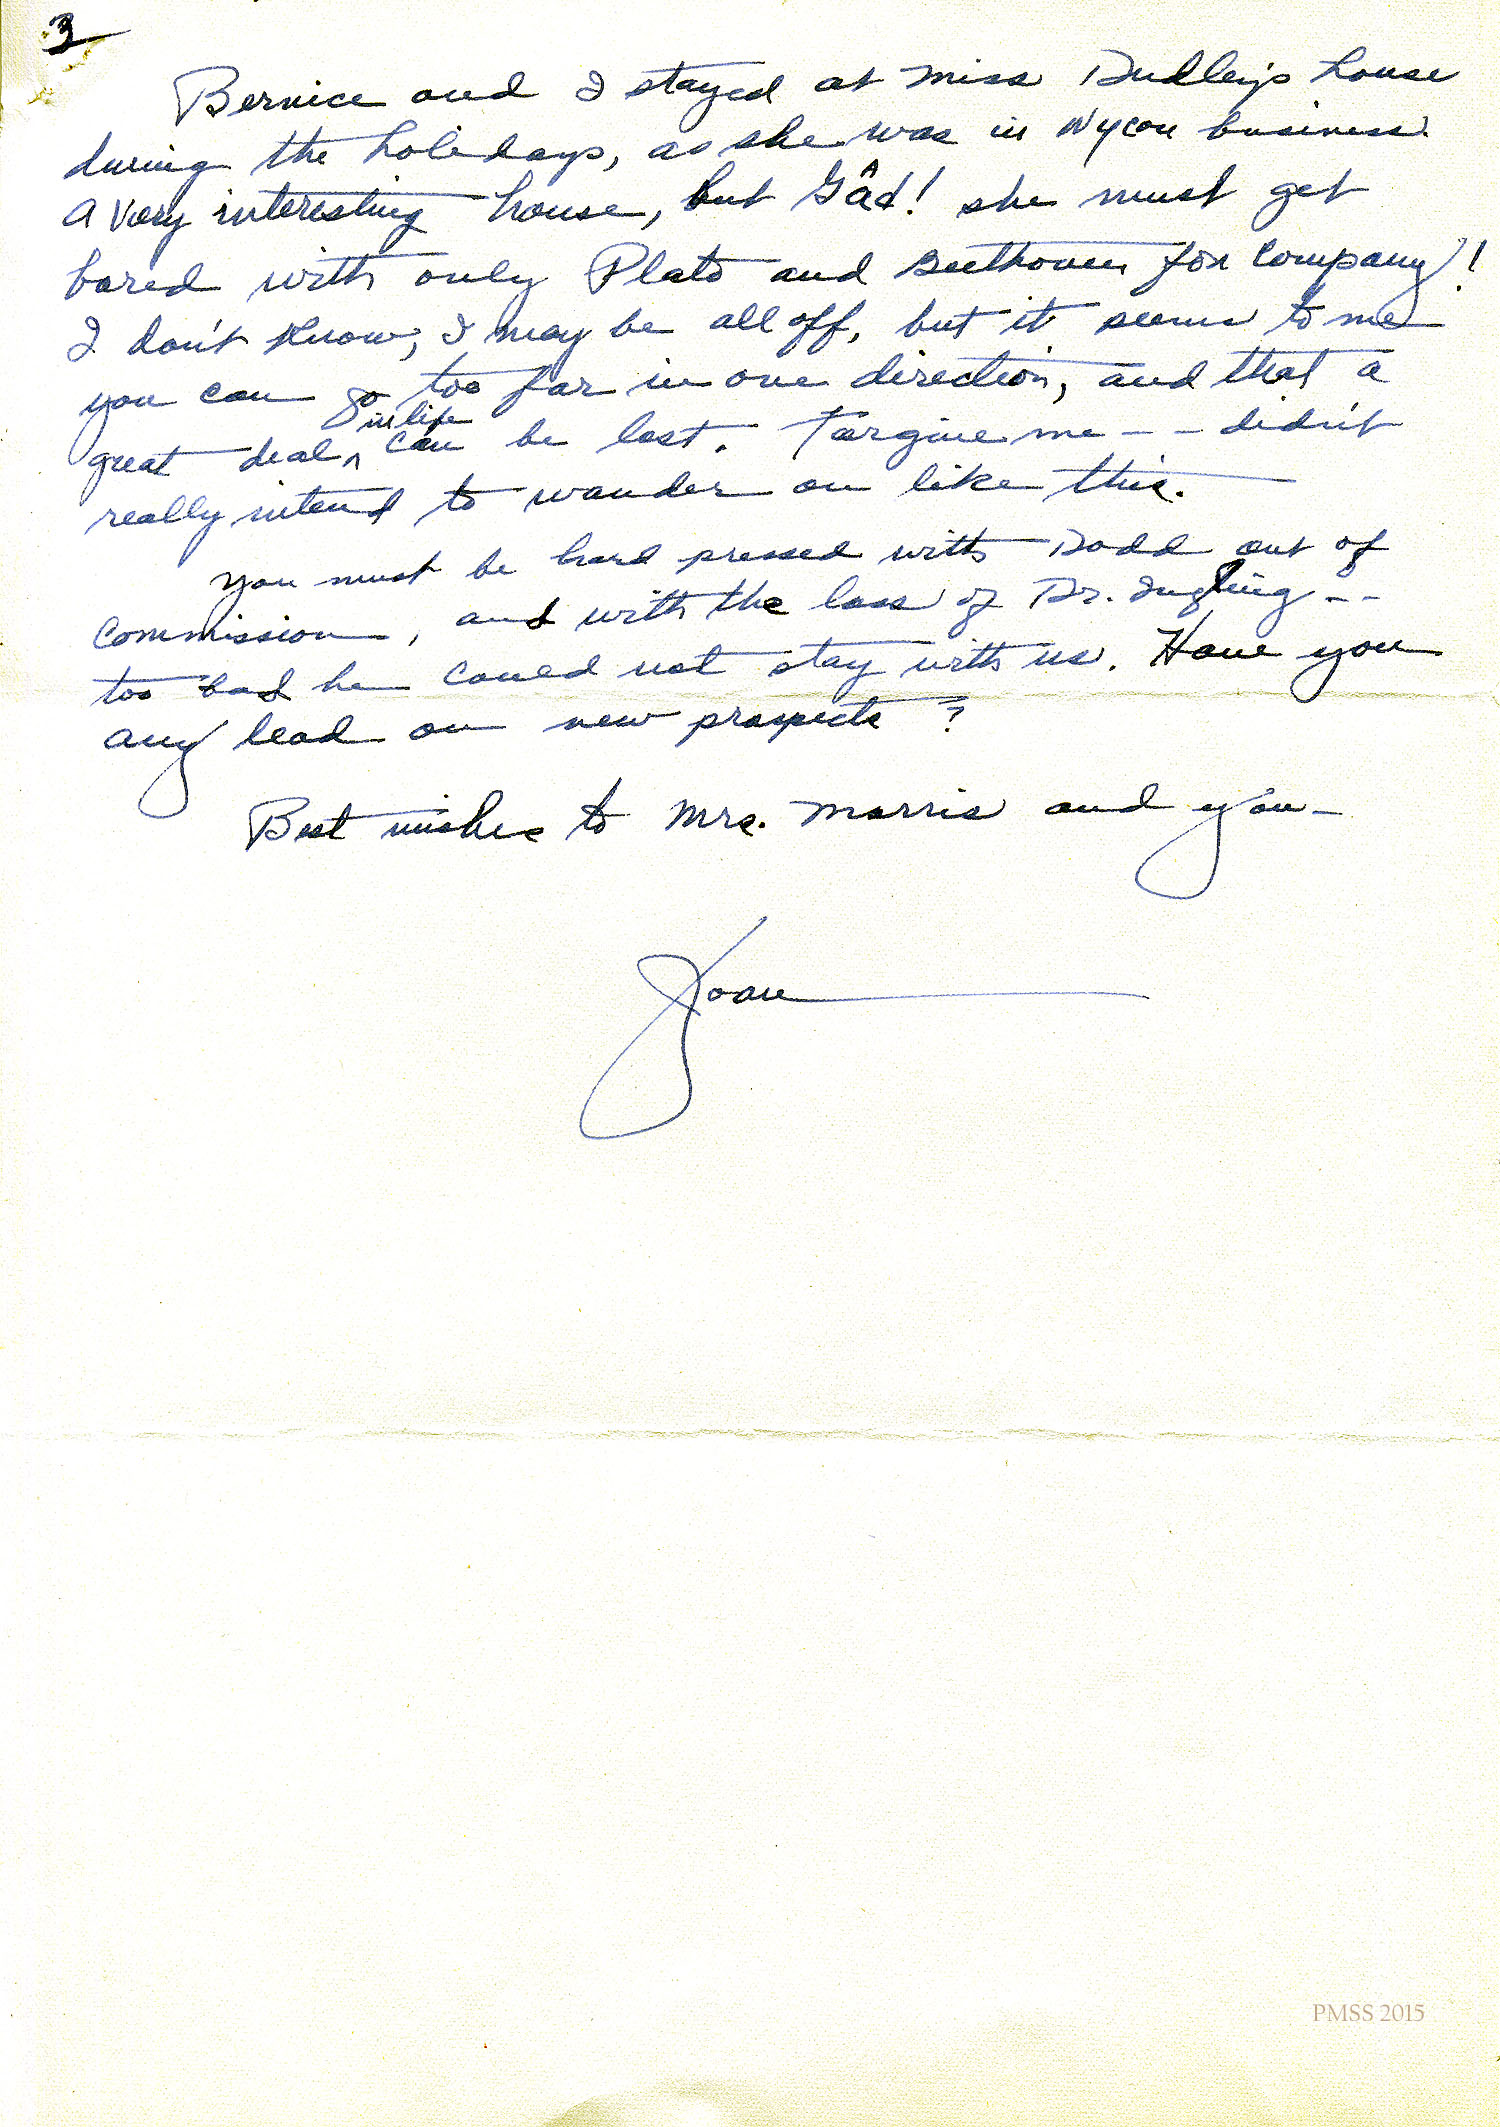 3
Bernice and I stayed at Miss Dudley's house
during the holidays, as she was in NYC on business.
A very interesting house, but Gâd! she must get
bored with only Plato and Beethoven for company!
I don't know, I may be all off, but it seems to me
you can go too far in one direction, and that a
great deal in life can be lost. Forgive me -- didn't
really intend to wander on like this.
You must be hard pressed with Dodd out of
commission, and with the loss of Dr. --
too bad he could not stay with us. Have you
any lead on new prospects?
Best wishes to Mrs. Morris and you -
Joan
PMSS 2015